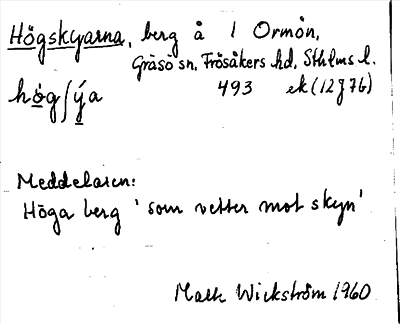 Högskyarna, berg å 1 Ormön,
Gräsö sn, Frösåkers hd, Sthlms l.
högʃýa 493 ek (12J7b)
Meddelaren:
Höga berg 'som vetter mot skyn'
Wickström 1960